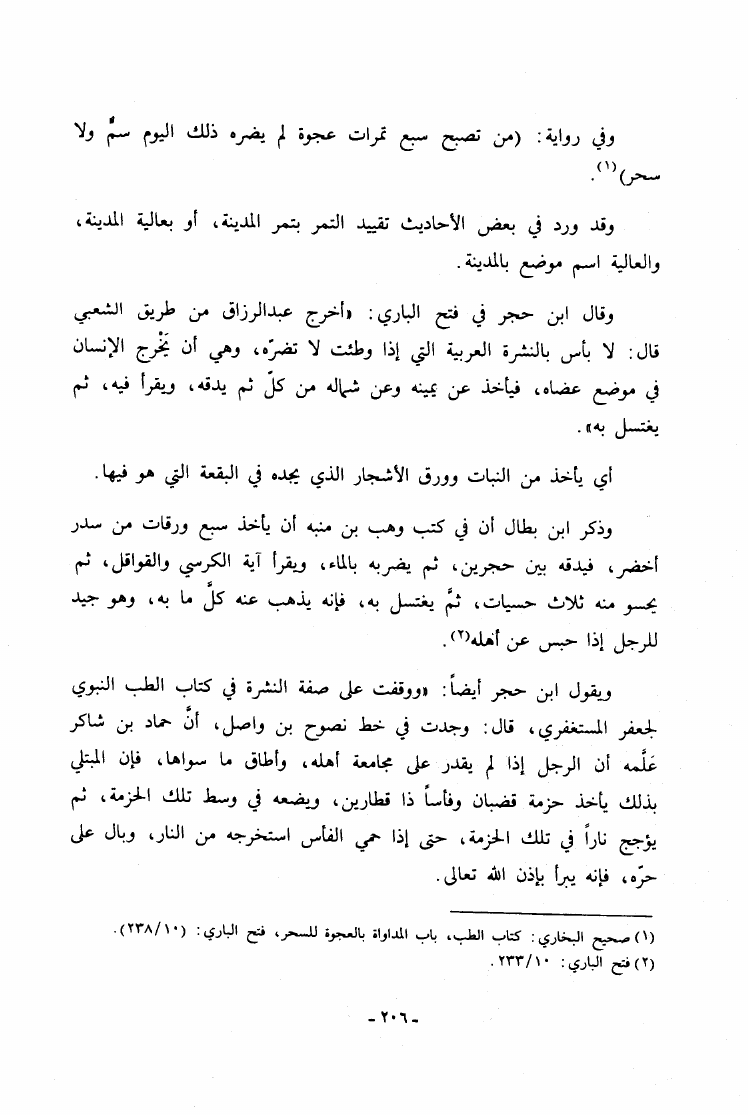 وفي رواية: (من تصبح سبع تمرات عجوة لم يضره ذلك اليوم سمٌّ ولا
سحر)(١).
وقد ورد في بعض الأحاديث تقييد التمر بتمر المدينة، أو بعالية المدينة،
والعالية اسم موضع بالمدينة.
وقال ابن حجر في فتح الباري: «أخرج عبدالرزاق من طريق الشعبي
قال: لا بأس بالنشرة العربية التي إذا وطئت لا تضرّه، وهي أن يَخْرج الإنسان
في موضع عضاه، فيأخذ عن يمينه وعن شماله من كلّ ثم يدقه، ويقرأ فيه، ثم
يغتسل به».
أي يأخذ من النبات وورق الأشجار الذي يجده في البقعة التي هو فيها.
وذكر ابن بطال أن في كتب وهب بن منبه أن يأخذ سبع ورقات من سدر
أخضر، فيدقه بين حجرين، ثم يضربه بالماء، ويقرأ آية الكرسي والقواقل، ثم
يحسو منه ثلاث حسيات، ثمَّ يغتسل به، فإنه يذهب عنه كلَّ ما به، وهو جيد
للرجل إذا حبس عن أهله(٢).
ويقول ابن حجر أيضاً: «ووقفت على صفة النشرة في كتاب الطب النبوي
لجعفر المستغفري، قال: وجدت في خط نصوح بن واصل، أنَّ حماد بن شاكر
عَلَّمه أن الرجل إذا لم يقدر على مجامعة أهله، وأطاق ما سواها، فإن المبتلي
بذلك يأخذ حزمة قضبان وفأساً ذا قطارين، ويضعه في وسط تلك الحزمة، ثم
يؤجج ناراً في تلك الحزمة، حتى إذا حمي الفأس استخرجه من النار، وبال على
حرّه، فإنه يبرأ بإذن الله تعالى.
(١) صحيح البخاري: كتاب الطب، باب المداواة بالعجوة للسحر، فتح الباري: (٢٣٨/١٠).
(٢) فتح الباري: ٢٣٣/١٠.
- ٢٠٦ -